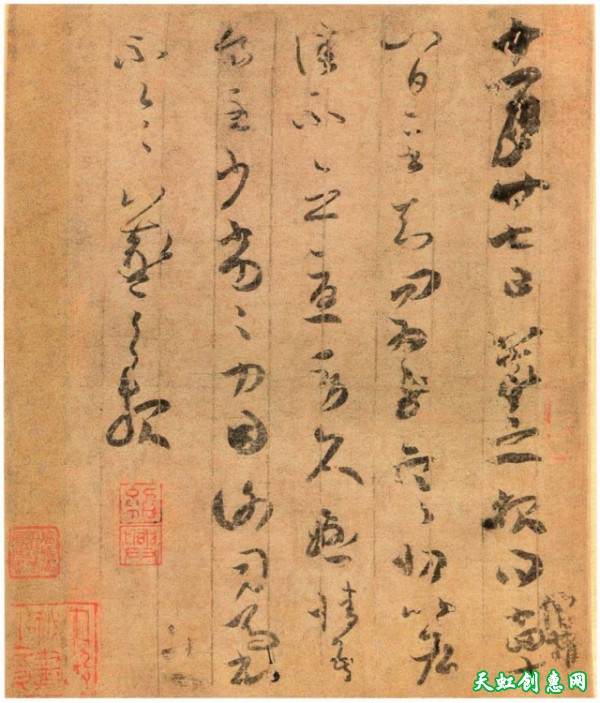 十一月廿七日羲之報得十四十
八日二書知問為慰寒切比各
佳不念憂勞久懸情吾
食至少劣劣力因謝司馬書
不一一羲之報
僧權
紹興
天虹创惠网